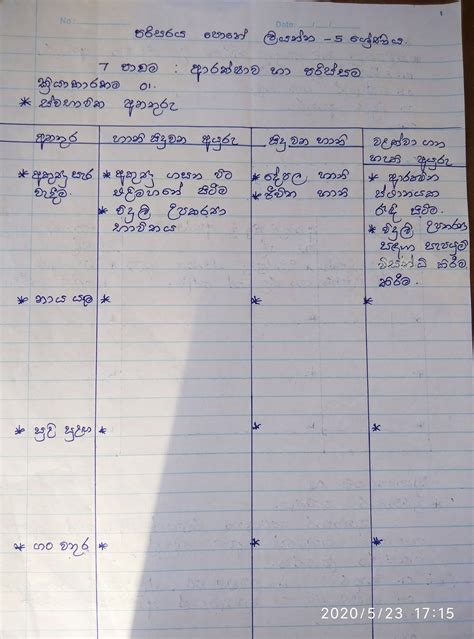 No:
Date:
1
පරිසරය පොතේ ලියන්න - 5 ශ්‍රේණිය.
7 පාඩම : ආරක්ෂාව හා පරිස්සම
ක්‍රියාකාරකම 01.
* ස්වභාවික අනතුරු
අනතුර
හානි සිදුවන අයුරු
සිදුවන හානි
වළක්වා ගත
හැකි අයුරු
* අකුණු සැර
වැදීම.
* අකුණු ගසන විට
එළිමහනේ සිටීම
* විදුලි උපකරණ
භාවිතය
* දේපල හානි
* ජීවිත හානි
* ආරක්ෂිත
ස්ථානයක
රැඳී සිටීම.
* විදුලි උපකරණ
සඳහා සැපයුම
විසන්ධි කිරීම
කිරීම.
* නාය යෑම
*
*
*
* සුළි සුළඟ
*
*
* ගං වතුර
*
*
2020/5/23 17:15